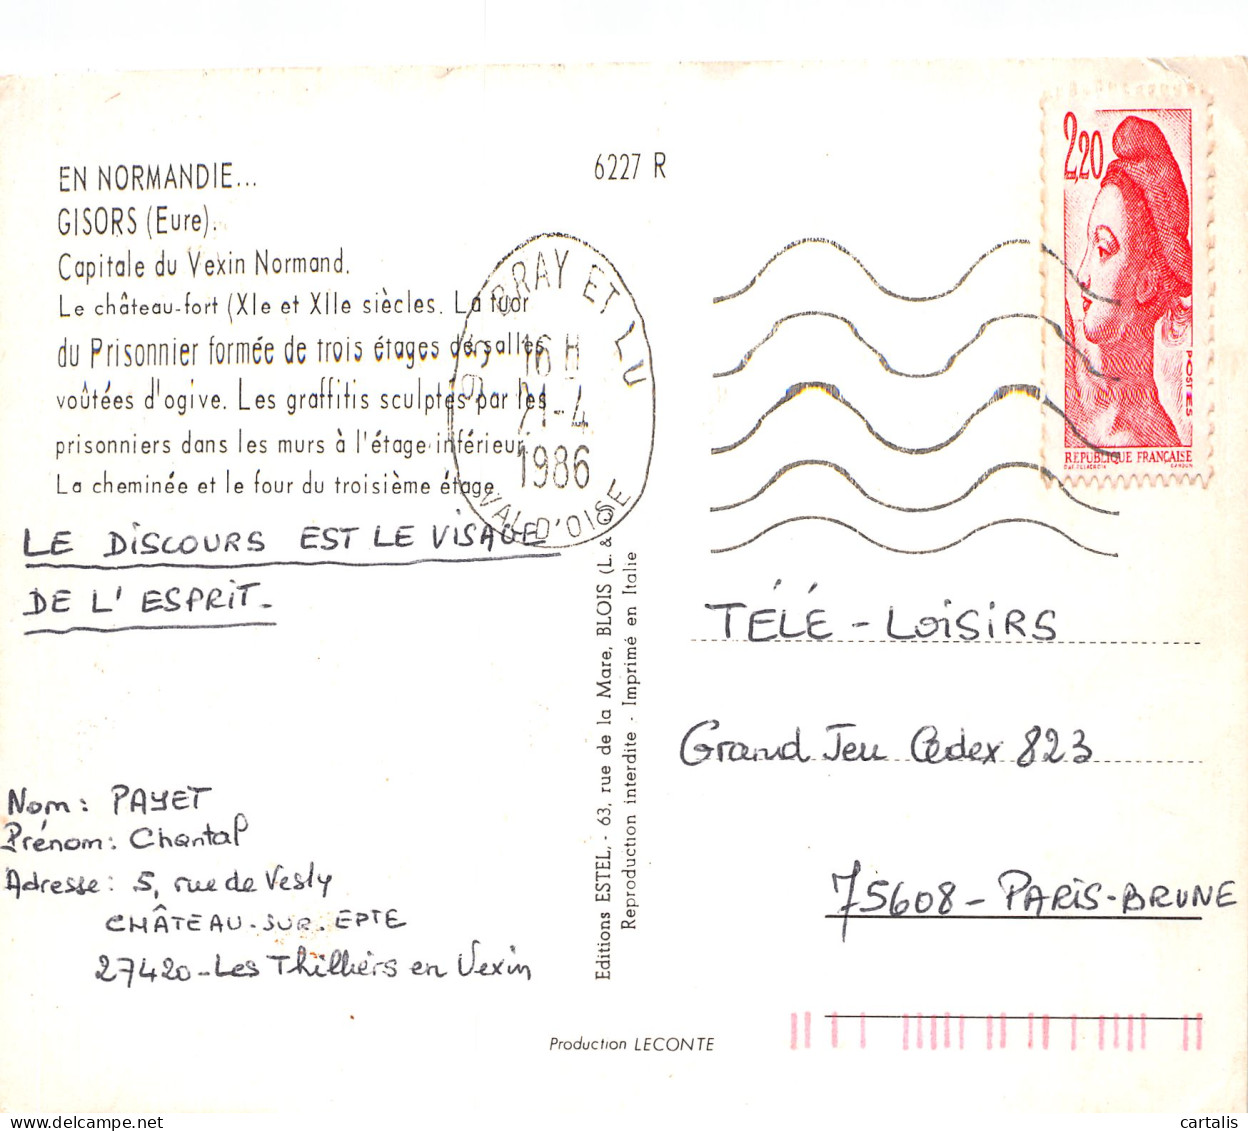 EN NORMANDIE...
GISORS (Eure).
Capitale du Vexin Normand.
Le château-fort (XIe et XIIe siècles. La tuor
du Prisonnier formée de trois étages de salles
voûtées d'ogive. Les graffitis sculptés par les
prisonniers dans les murs à l'étage inférieur.
La cheminée et le four du troisième étage
LE DISCOURS EST LE VISAGE
DE L'ESPRIT.
Nom: PAYET
Prénom: Chantal
Adresse: 5, rue de Vesly
CHÂTEAU-SUR-EPTE
27420-Les Thilliers en Vexin
6227 R
BRAY ET LU
16 H
21-4
1986
VAL D'OISE
Editions ESTEL, - 63, rue de la Mare, BLOIS (L. &
Reproduction interdite - Imprimé en Italie
Production LECONTE
2,20
POSTES
REPUBLIQUE FRANÇAISE
TÉLÉ-LOISIRS
Grand Jeu Cedex 823
75608-PARIS-BRUNE
cartalis